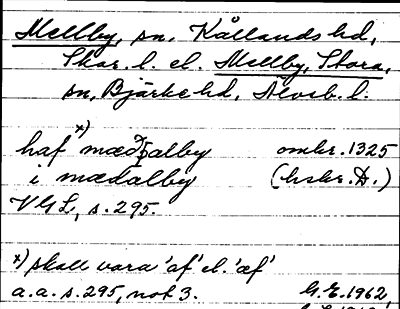 Mellby, sn, Kållands hd,
Skar. l. el. Mellby, Stora,
sn, Bjärke hd, Älvsb. l.
haf x) mædhalby omkr. 1325
i mædalby (hskr. D.)
VGL, s. 295.
x) skall vara 'af' el. 'æf'
a.a. s. 295, not 3. G.E. 1962,